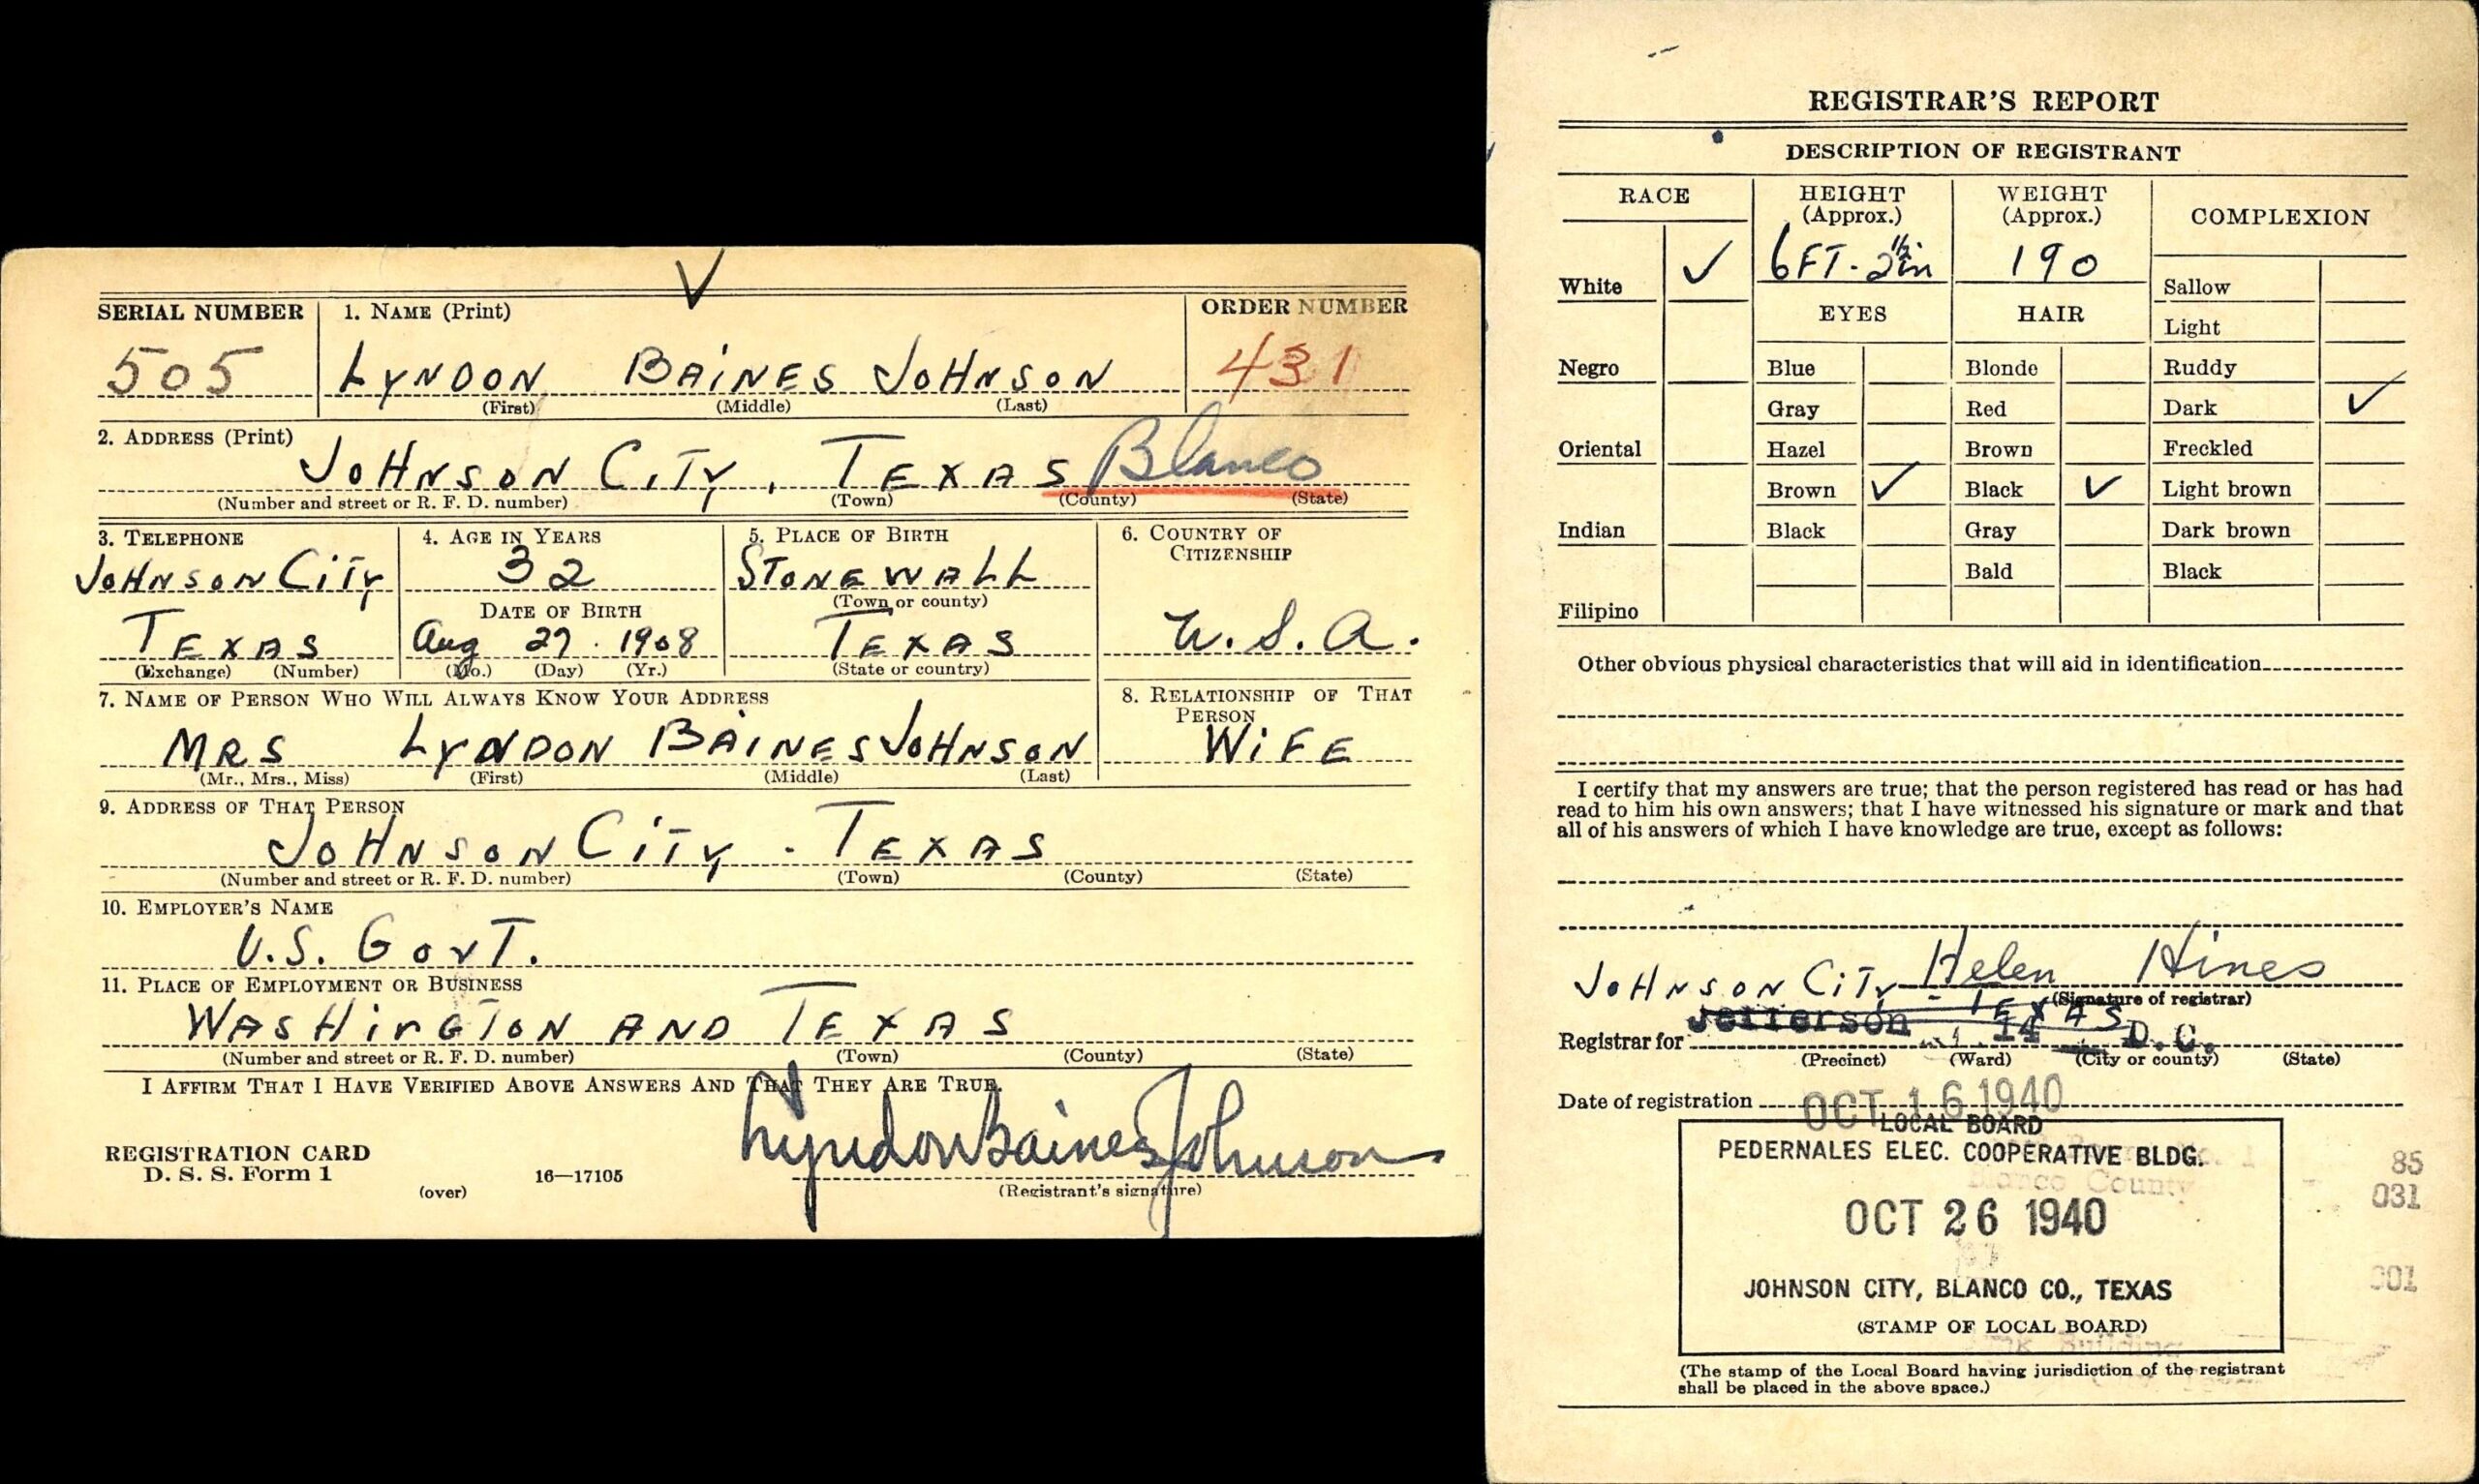 SERIAL NUMBER 1. NAME (Print) ORDER NUMBER
505 LYNDON BAINES JOHNSON 431
(First) (Middle) (Last)
2. ADDRESS (Print)
JOHNSON CITY, TEXAS Blanco
(Number and street or R. F. D. number) (Town) (County) (State)
3. TELEPHONE 4. AGE IN YEARS 5. PLACE OF BIRTH 6. COUNTRY OF
CITIZENSHIP
JOHNSON CITY 32 STONEWALL
DATE OF BIRTH (Town or county)
TEXAS Aug 27 . 1908 TEXAS U.S.A.
(Exchange) (Number) (Mo.) (Day) (Yr.) (State or country)
7. NAME OF PERSON WHO WILL ALWAYS KNOW YOUR ADDRESS 8. RELATIONSHIP OF THAT
PERSON
MRS LYNDON BAINES JOHNSON WIFE
(Mr., Mrs., Miss) (First) (Middle) (Last)
9. ADDRESS OF THAT PERSON
JOHNSON CITY - TEXAS
(Number and street or R. F. D. number) (Town) (County) (State)
10. EMPLOYER'S NAME
U.S. GOVT.
11. PLACE OF EMPLOYMENT OR BUSINESS
WASHINGTON AND TEXAS
(Number and street or R. F. D. number) (Town) (County) (State)
I AFFIRM THAT I HAVE VERIFIED ABOVE ANSWERS AND THAT THEY ARE TRUE.
Lyndon Baines Johnson
REGISTRATION CARD
D. S. S. Form 1 16—17105
(over) (Registrant's signature)
REGISTRAR'S REPORT
DESCRIPTION OF REGISTRANT
RACE HEIGHT WEIGHT COMPLEXION
(Approx.) (Approx.)
6FT. 2 1/2 in 190
White ✓ Sallow
EYES HAIR
Light
Negro Blue Blonde Ruddy
Gray Red Dark ✓
Oriental Hazel Brown Freckled
Brown ✓ Black ✓ Light brown
Indian Black Gray Dark brown
Bald Black
Filipino
Other obvious physical characteristics that will aid in identification
I certify that my answers are true; that the person registered has read or has had
read to him his own answers; that I have witnessed his signature or mark and that
all of his answers of which I have knowledge are true, except as follows:
JOHNSON CITY - TEXAS Helen Hines
(Signature of registrar)
Registrar for Jefferson 14 D.C.
(Precinct) (Ward) (City or county) (State)
Date of registration OCT 16 1940
LOCAL BOARD
PEDERNALES ELEC. COOPERATIVE BLDG.
Blanco County
85
031
OCT 26 1940
JOHNSON CITY, BLANCO CO., TEXAS
(STAMP OF LOCAL BOARD)
(The stamp of the Local Board having jurisdiction of the registrant
shall be placed in the above space.)